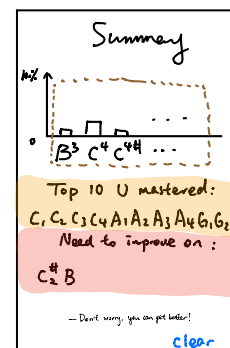 Summary
10.%
0
B³ C⁴ C⁴# ...
Top 10 U mastered:
C₁ C₂ C₃ C₄ A₁ A₂ A₃ A₄ G₁ G₂
Need to inprove on :
C₂# B
— Don't worry, you can get better!
clear